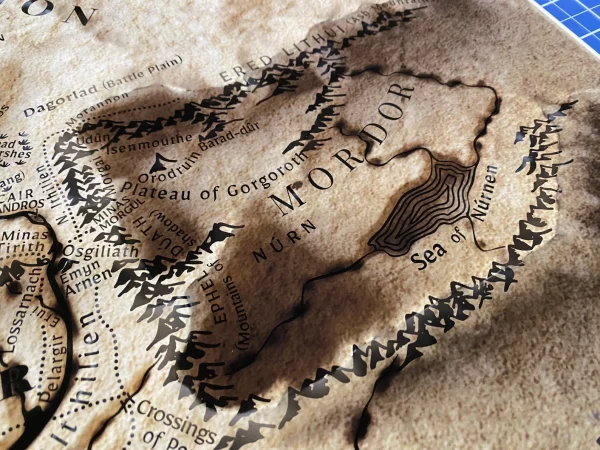 ON
Dagorlad (Battle Plain)
ERED LITHUI
Morannon
Isenmouthe
Barad-dûr
Orodruin
Plateau of Gorgoroth
MORDOR
NÛRN
Sea of Núrnen
N. Ithilien
CAIR
ANDROS
MINAS
MORGUL
Minas
Tirith
Osgiliath
Emyn
Arnen
EPHEL
DÚATH
(Mountains of
Shadow)
Lossarnach
Pelargir
Ithilien
Crossings